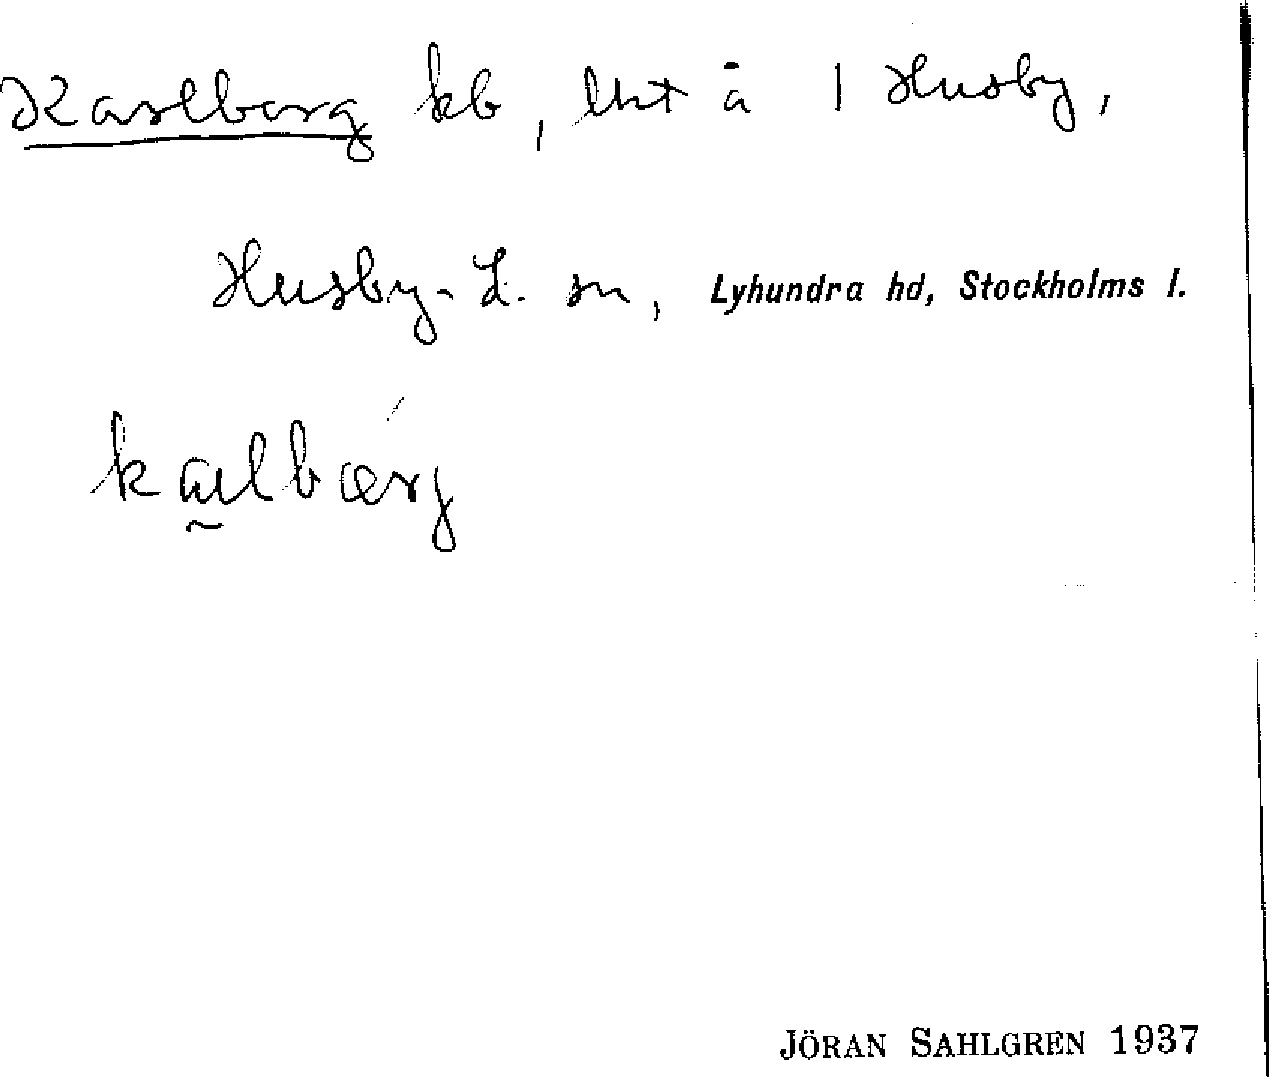 Karlborg kb, lht å 1 Husby,
Husby-L. sn, Lyhundra hd, Stockholms l.
kalbærj
JÖRAN SAHLGREN 1937